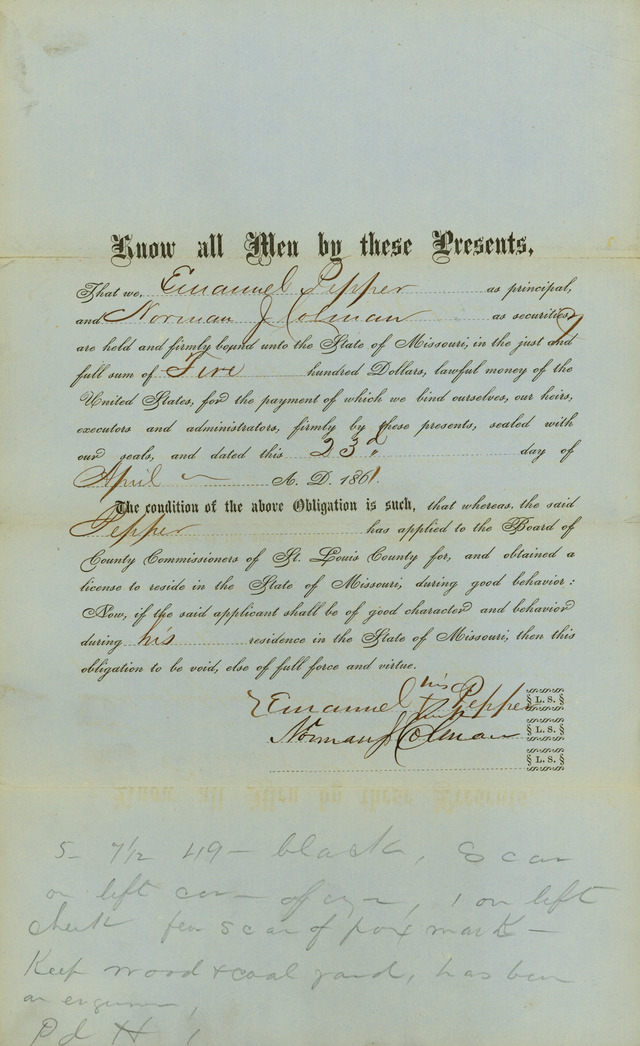 Know all Men by these Presents,
That we, Emanuel Pepper as principal,
and Norman J Colman as securities,
are held and firmly bound unto the State of Missouri, in the just and
full sum of Five hundred Dollars, lawful money of the
United States, for the payment of which we bind ourselves, our heirs,
executors and administrators, firmly by these presents, sealed with
our seals, and dated this 23d day of
April A. D. 1861.
The condition of the above Obligation is such, that whereas, the said
Pepper has applied to the Board of
County Commissioners of St. Louis County for, and obtained a
license to reside in the State of Missouri, during good behavior:
Now, if the said applicant shall be of good character and behavior
during his residence in the State of Missouri, then this
obligation to be void, else of full force and virtue.
his
Emanuel + Pepper L. S.
mark
Norman J Colman L. S.
L. S.
5- 7 1/2 49 - black, Scar
on left corn of eye, 1 on left
cheek few scar of pox mark -
Keep wood & coal yard, has been
an engineer,
Pd H